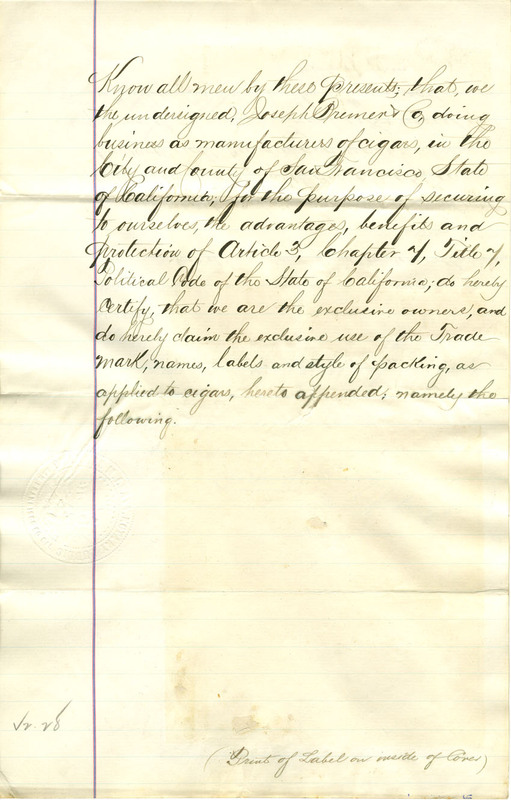 Know all men by these presents; that, we
the undersigned, Joseph Bremer & Co, doing
business as manufacturers of cigars, in the
City and County of San Francisco, State
of California; for the purpose of securing
to ourselves, the advantages, benefits and
protection of Article 3, Chapter 7, Title 7,
Political Code of the State of California; do hereby
Certify, that we are the exclusive owners, and
do hereby claim the exclusive use of the Trade
mark, names, labels and style of packing, as
applied to cigars, hereto appended; namely the
following.
(Print of Label on inside of Cover)